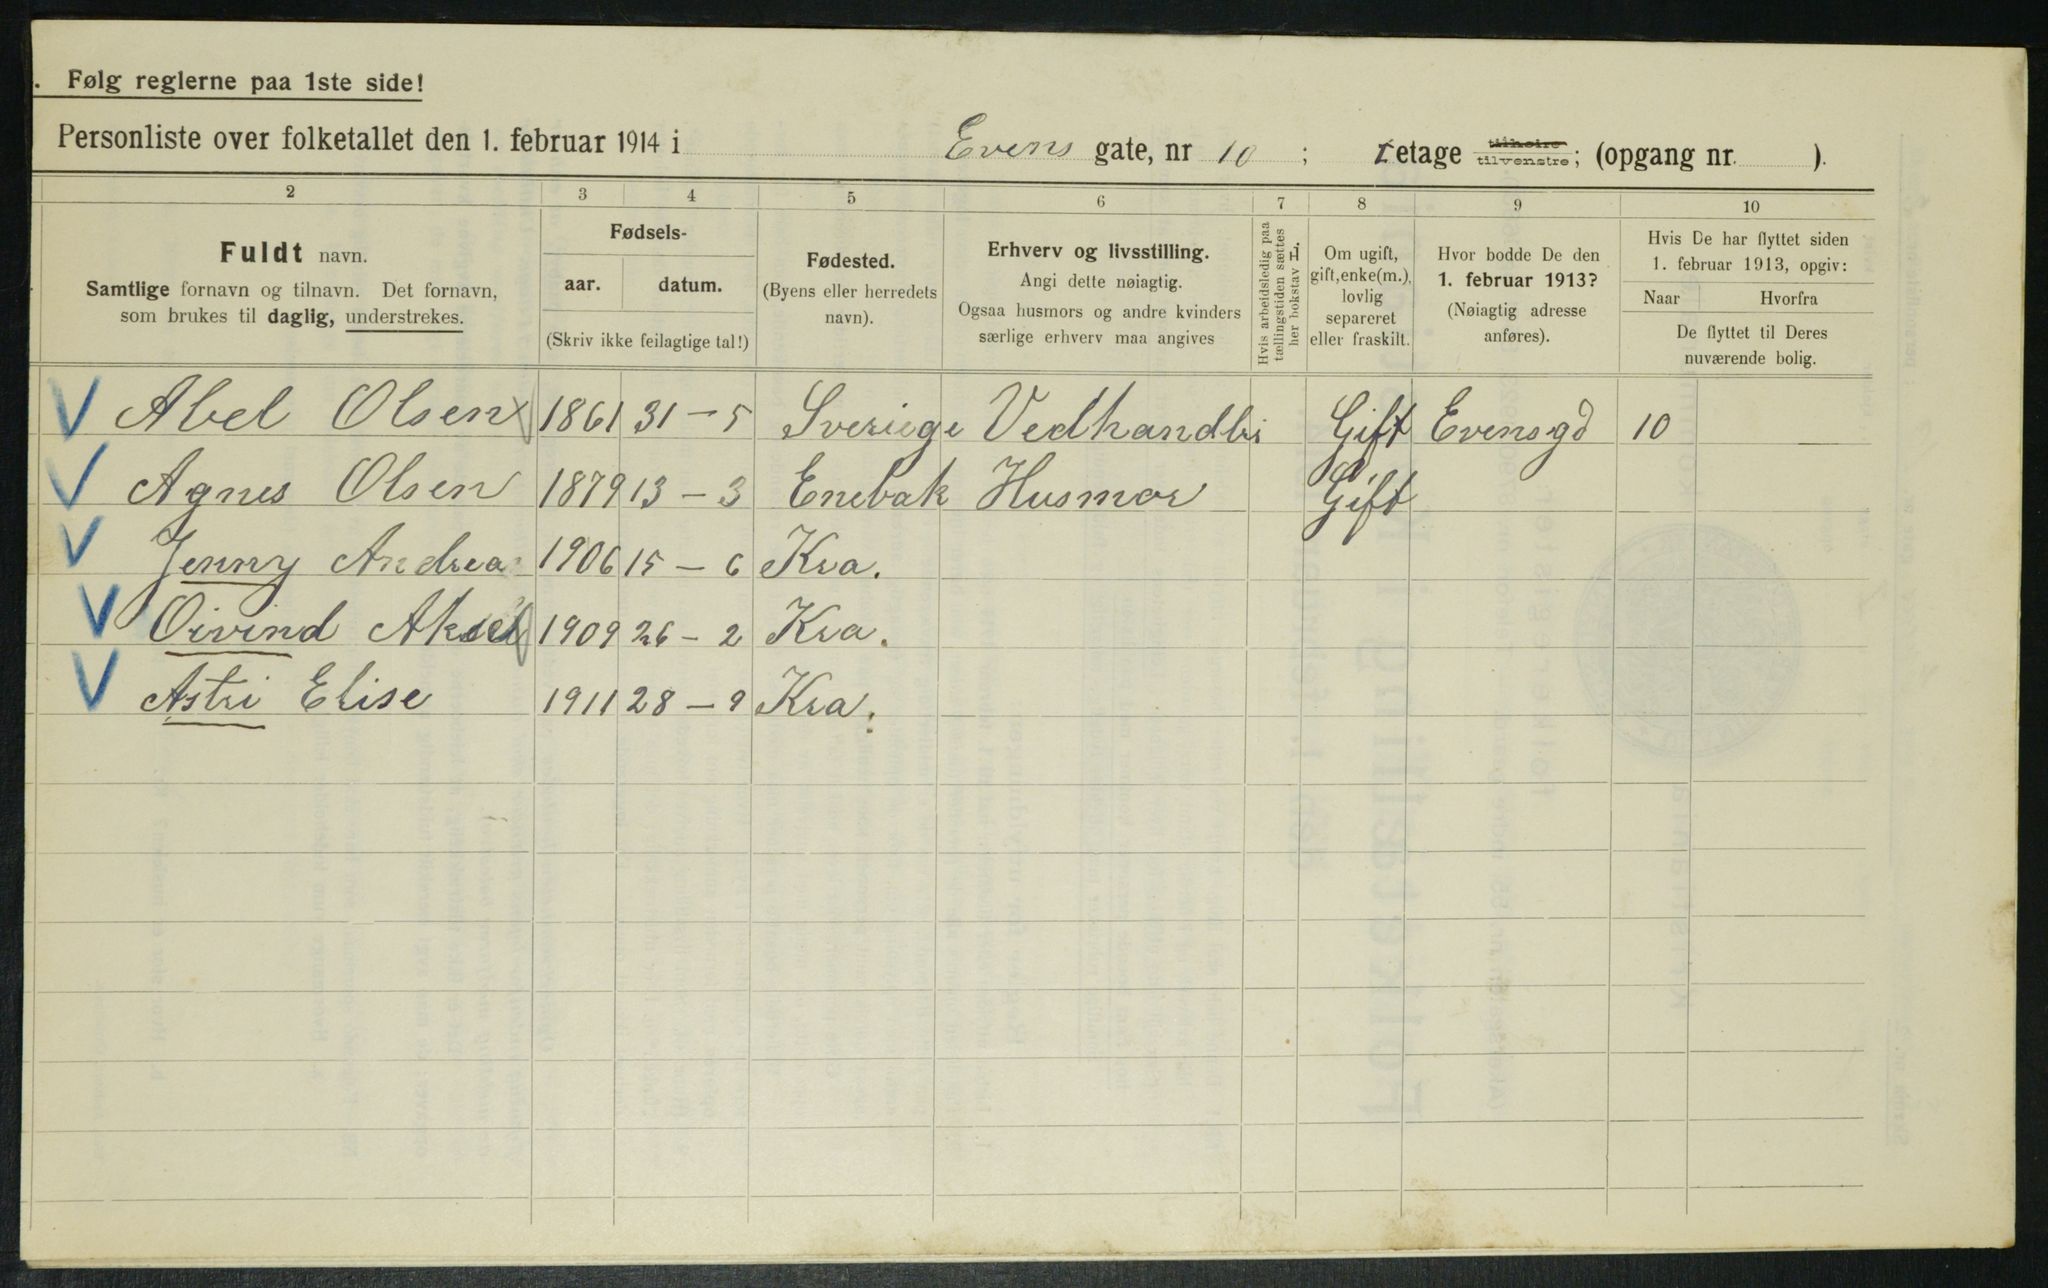 . Følg reglerne paa 1ste side!
Personliste over folketallet den 1. februar 1914 i Evens gate, nr 10 ; I etage tilhøire tilvenstre; (opgang nr. ).
2 3 4 5 6 7 8 9 10
Fuldt navn.
Samtlige fornavn og tilnavn. Det fornavn,
som brukes til daglig, understrekes.
Fødsels-
aar. datum.
(Skriv ikke feilagtige tal!)
Fødested.
(Byens eller herredets
navn).
Erhverv og livsstilling.
Angi dette nøiagtig.
Ogsaa husmors og andre kvinders
særlige erhverv maa angives
Hvis arbeidsledig paa
tællingstiden sættes
her bokstav L.
Om ugift,
gift, enke(m.),
lovlig
separeret
eller fraskilt.
Hvor bodde De den
1. februar 1913?
(Nøiagtig adresse
anføres).
Hvis De har flyttet siden
1. februar 1913, opgiv:
Naar Hvorfra
De flyttet til Deres
nuværende bolig.
Abel Olsen 1861 31-5 Sveriege Vedhandler Gift Evensgd 10
Agnes Olsen 1879 13-3 Enebak Husmor Gift
Jenny Andrea 1906 15-6 Kra.
Oivind Aksel 1909 26-2 Kra.
Astri Elise 1911 28-9 Kra.